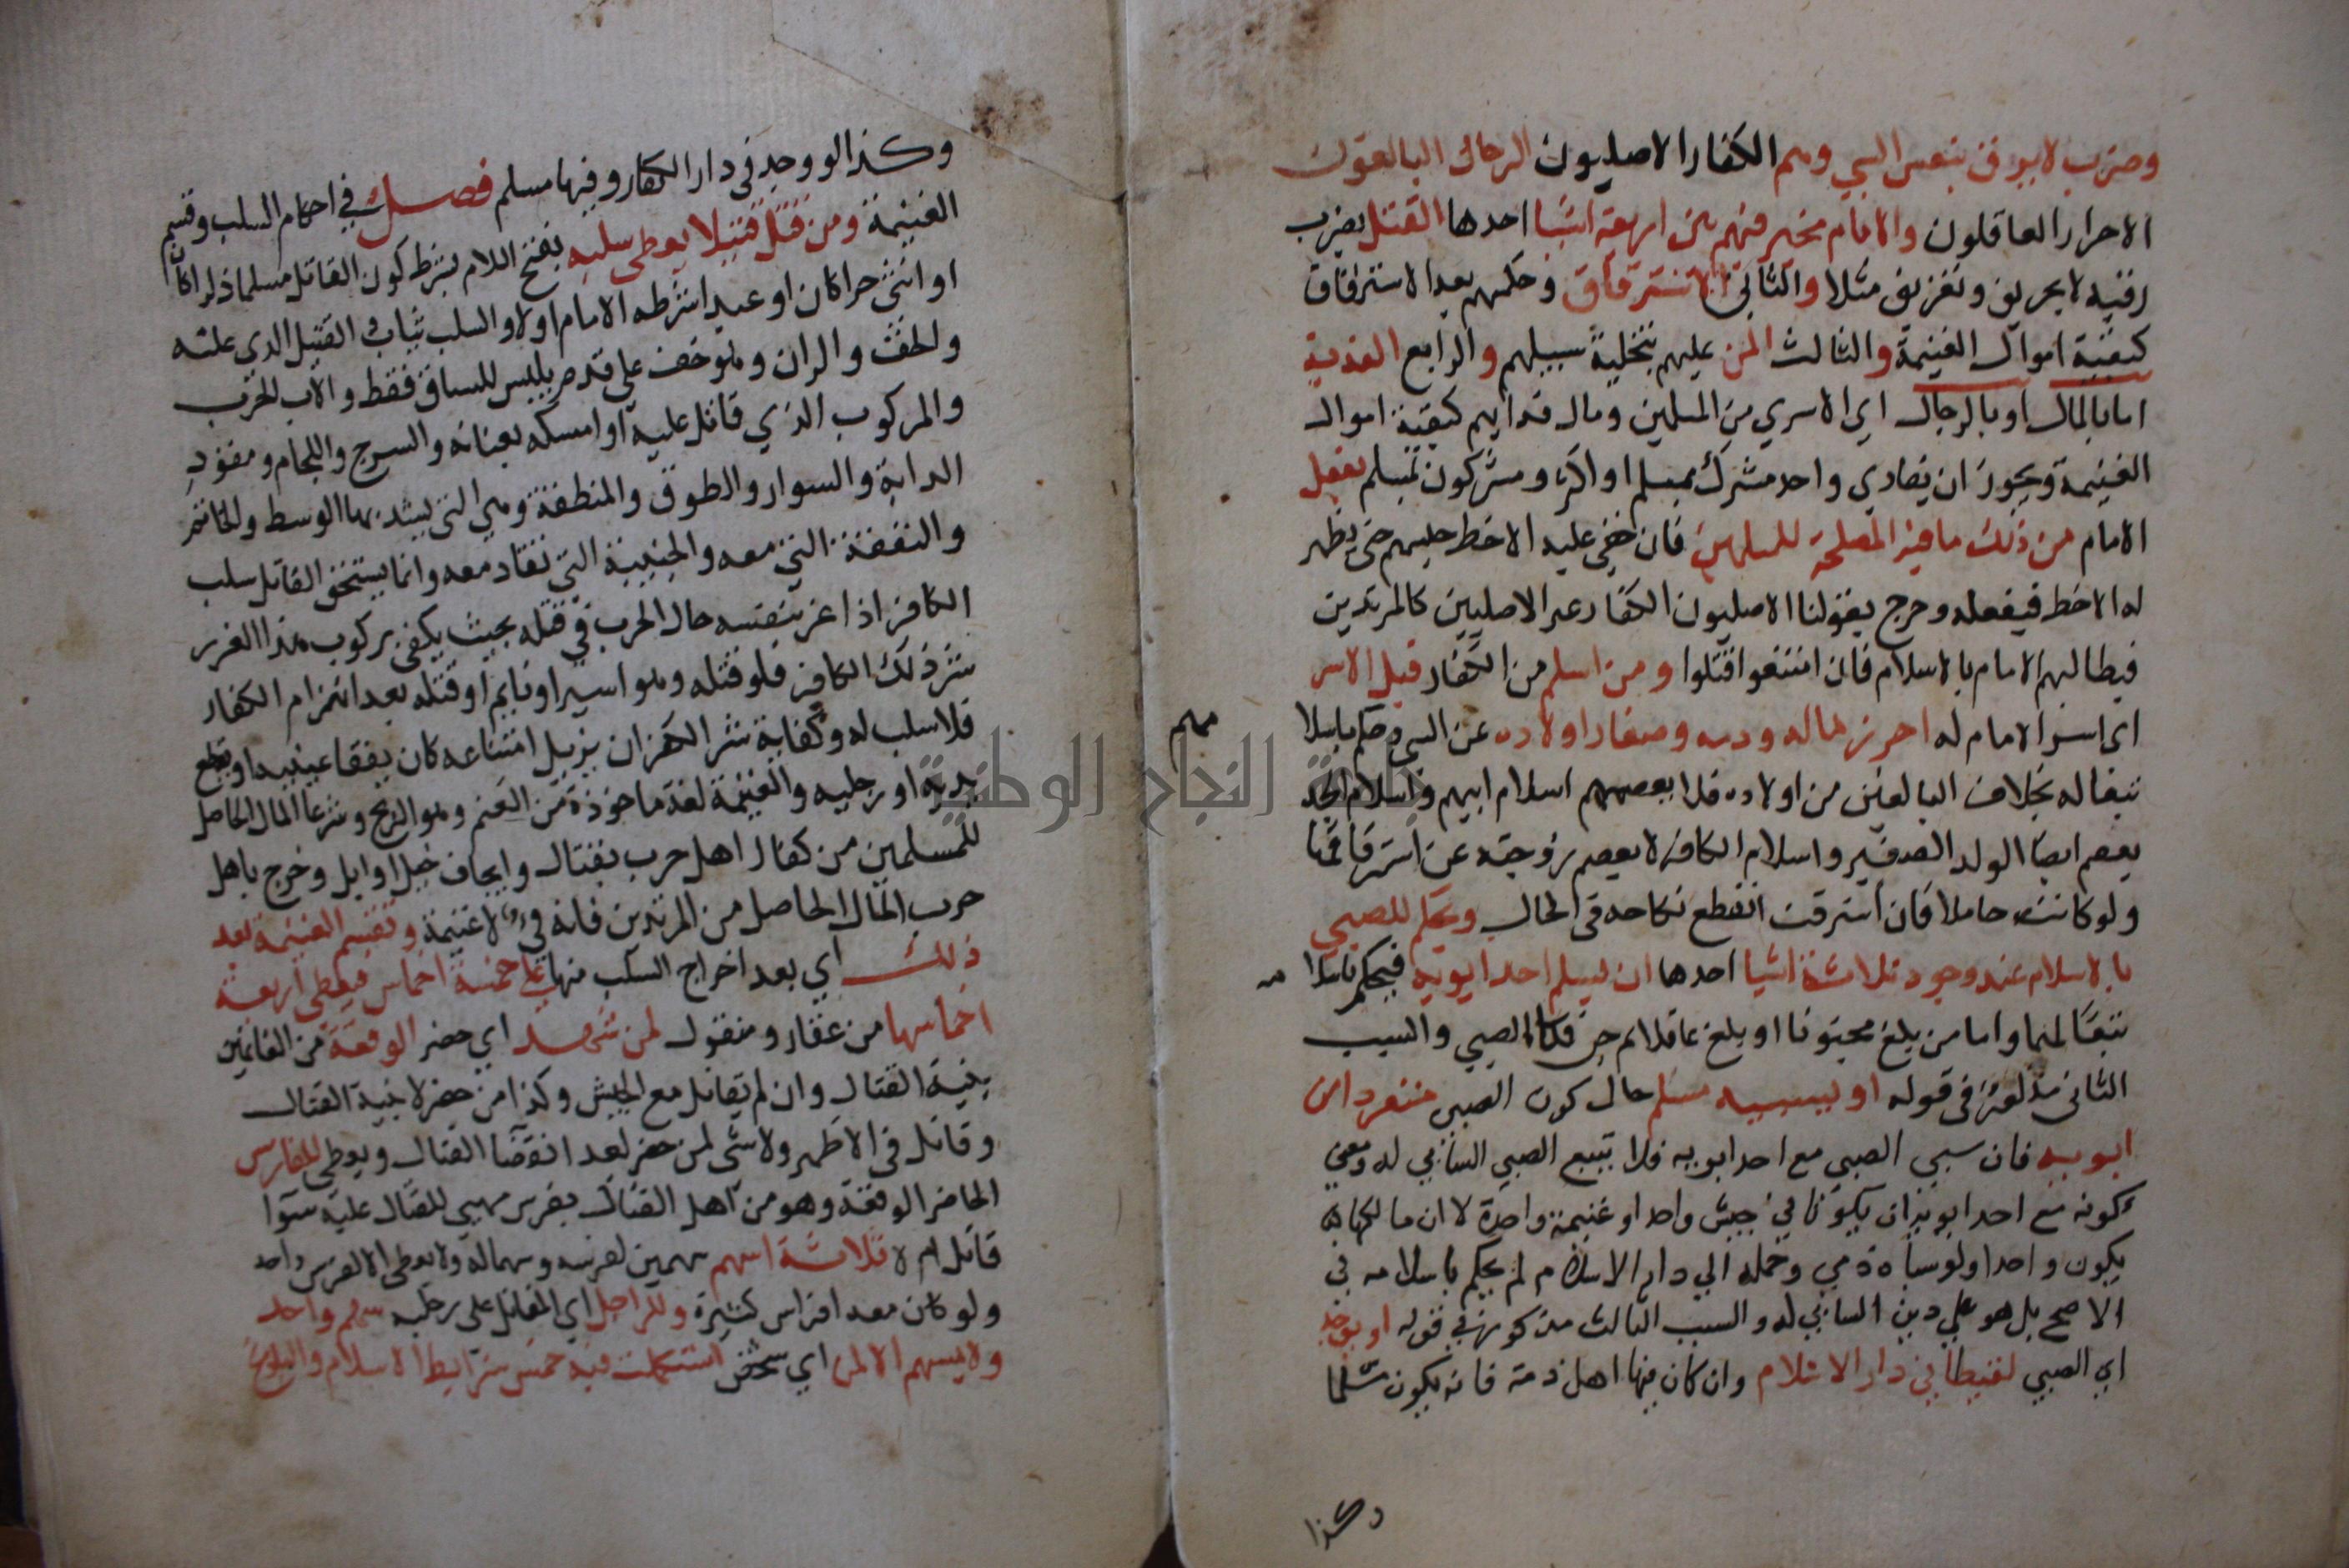 وضرب لا يرق بنفس السبي وهم الكفار الاصليون الرجال البالغون
الاحرار العاقلون والامام مخير فيهم بين اربعة اشيا احدها القتل بضرب
رقبة لا بحريق وتغريق مثلا والثاني الاسترقاق وحكمهم بعد الاسترقاق
كبقية اموال الغنيمة والثالث المن عليهم بتخلية سبيلهم والرابع الفدية
اما بالمال او بالرجال اي الاسري من المسلمين ومال فدايهم كبقية اموال
الغنيمة ويجوز ان يفادي واحد مشرك بمسلم او اكثر ومشركون بمسلم يفعل
الامام من ذلك ما فيه المصلحة للمسلمين فان خفي عليه الاحظ حبسهم حتى يظهر
له الاحظ فيفعله وخرج بقولنا الاصليون الكفار غير الاصليين كالمرتدين
فيطالبهم الامام بالاسلام فان امتنعوا قتلوا ومن اسلم من الكفار قبل الاسر
اي اسر الامام له احرز ماله ودمه وصغار اولاده عن السبي وحكم باسلا
مهم
تبعا له بخلاف البالغين من اولاده فلا يعصمهم اسلام ابيهم واسلام الجد
يعصم ايضا الولد الصغير واسلام الكافر لا يعصم زوجته عن استرقاقها
ولو كانت حاملا فان استرقت انقطع نكاحه في الحال ويحكم للصبي
بالاسلام عند وجود ثلاثة اشيا احدها ان يسلم احد ابويه فيحكم باسلا
مه
تبعا لهما واما من بلغ مجنونا او بلغ عاقلا ثم جن فكالصبي والسبب
الثاني مذكور في قوله او يسبيه مسلم حال كون الصبي منفرد اعن
ابويه فان سبي الصبي مع احد ابويه فلا يتبع الصبي السابي له ومعني
كونه مع احد ابويه ان يكونا في جيش واحد او غنيمة واحدة لا ان مالكهما
يكون واحدا ولو سباه ذمي وحمله الي دار الاسلام لم يحكم باسلامه في
الاصح بل هو على دين السابي له والسبب الثالث مذكور في قوله او يوجد
اي الصبي لقيطا في دار الاسلام وان كان فيها اهل ذمة فانه يكون مسلما
وكذا
وكذا لو وجد في دار الكفار وفيها مسلم فصل في احكام السلب وقسم
الغنيمة ومن قتل قتيلا يعطى سلبه بفتح اللام بشرط كون القاتل مسلما ذكرا كان
او انثى حرا كان او عبدا شرطه الامام او لا والسلب ثياب القتيل التي عليه
والخف والران وهو خف على قدم يلبس للساق فقط والات الحرب
والمركوب الذي قاتل عليه او امسكه بعنانه والسرج واللجام ومقود
الدابة والسوار والطوق والمنطقة وهي التي يشد بها الوسط والخاتم
والنفقة التي معه والجنيبة التي تقاد معه وانما يستحق القاتل سلب
الكافر اذا غر بنفسه حال الحرب في قتله بحيث يكفي بركوب هذا الغرر
شر ذلك الكافر فلو قتله وهو اسير او نايم او قتله بعد انهزام الكفار
فلا سلب له وكفاية شر الكافر ان يزيل امتناعه كان يفقا عينيه او يقطع
يديه او رجليه والغنيمة لغة ماخوذة من الغنم وهو الربح وشرعا المال الحاصل
للمسلمين من كفار اهل حرب بقتال وايجاف خيل او ابل وخرج باهل
حرب المال الحاصل من المرتدين فانه في لا غنيمة وتقسم الغنيمة بعد
ذلك اي بعد اخراج السلب منها على خمسة اخماس فيعطى اربعة
اخماسها من عقار ومنقول لمن شهد اي حضر الوقعة من الغانمين
بنية القتال وان لم يقاتل مع الجيش وكذا من حضر لا بنية القتال
وقاتل في الاظهر ولا شى لمن حضر بعد انقضا القتال ويعطى للفارس
الحاضر الوقعة وهو من اهل القتال بفرس مهيي للقتال عليه سوا
قاتل ام لا ثلاثة اسهم سهمين لفرسه وسهما له ولا يعطى الا لفرس واحد
ولو كان معه افراس كثيرة وللراجل اي المقاتل على رجليه سهم واحد
ولا يسهم الا لمن اي شخص استكملت فيه خمس شرايط الاسلام والبلوغ
جامعة النجاح الوطنية